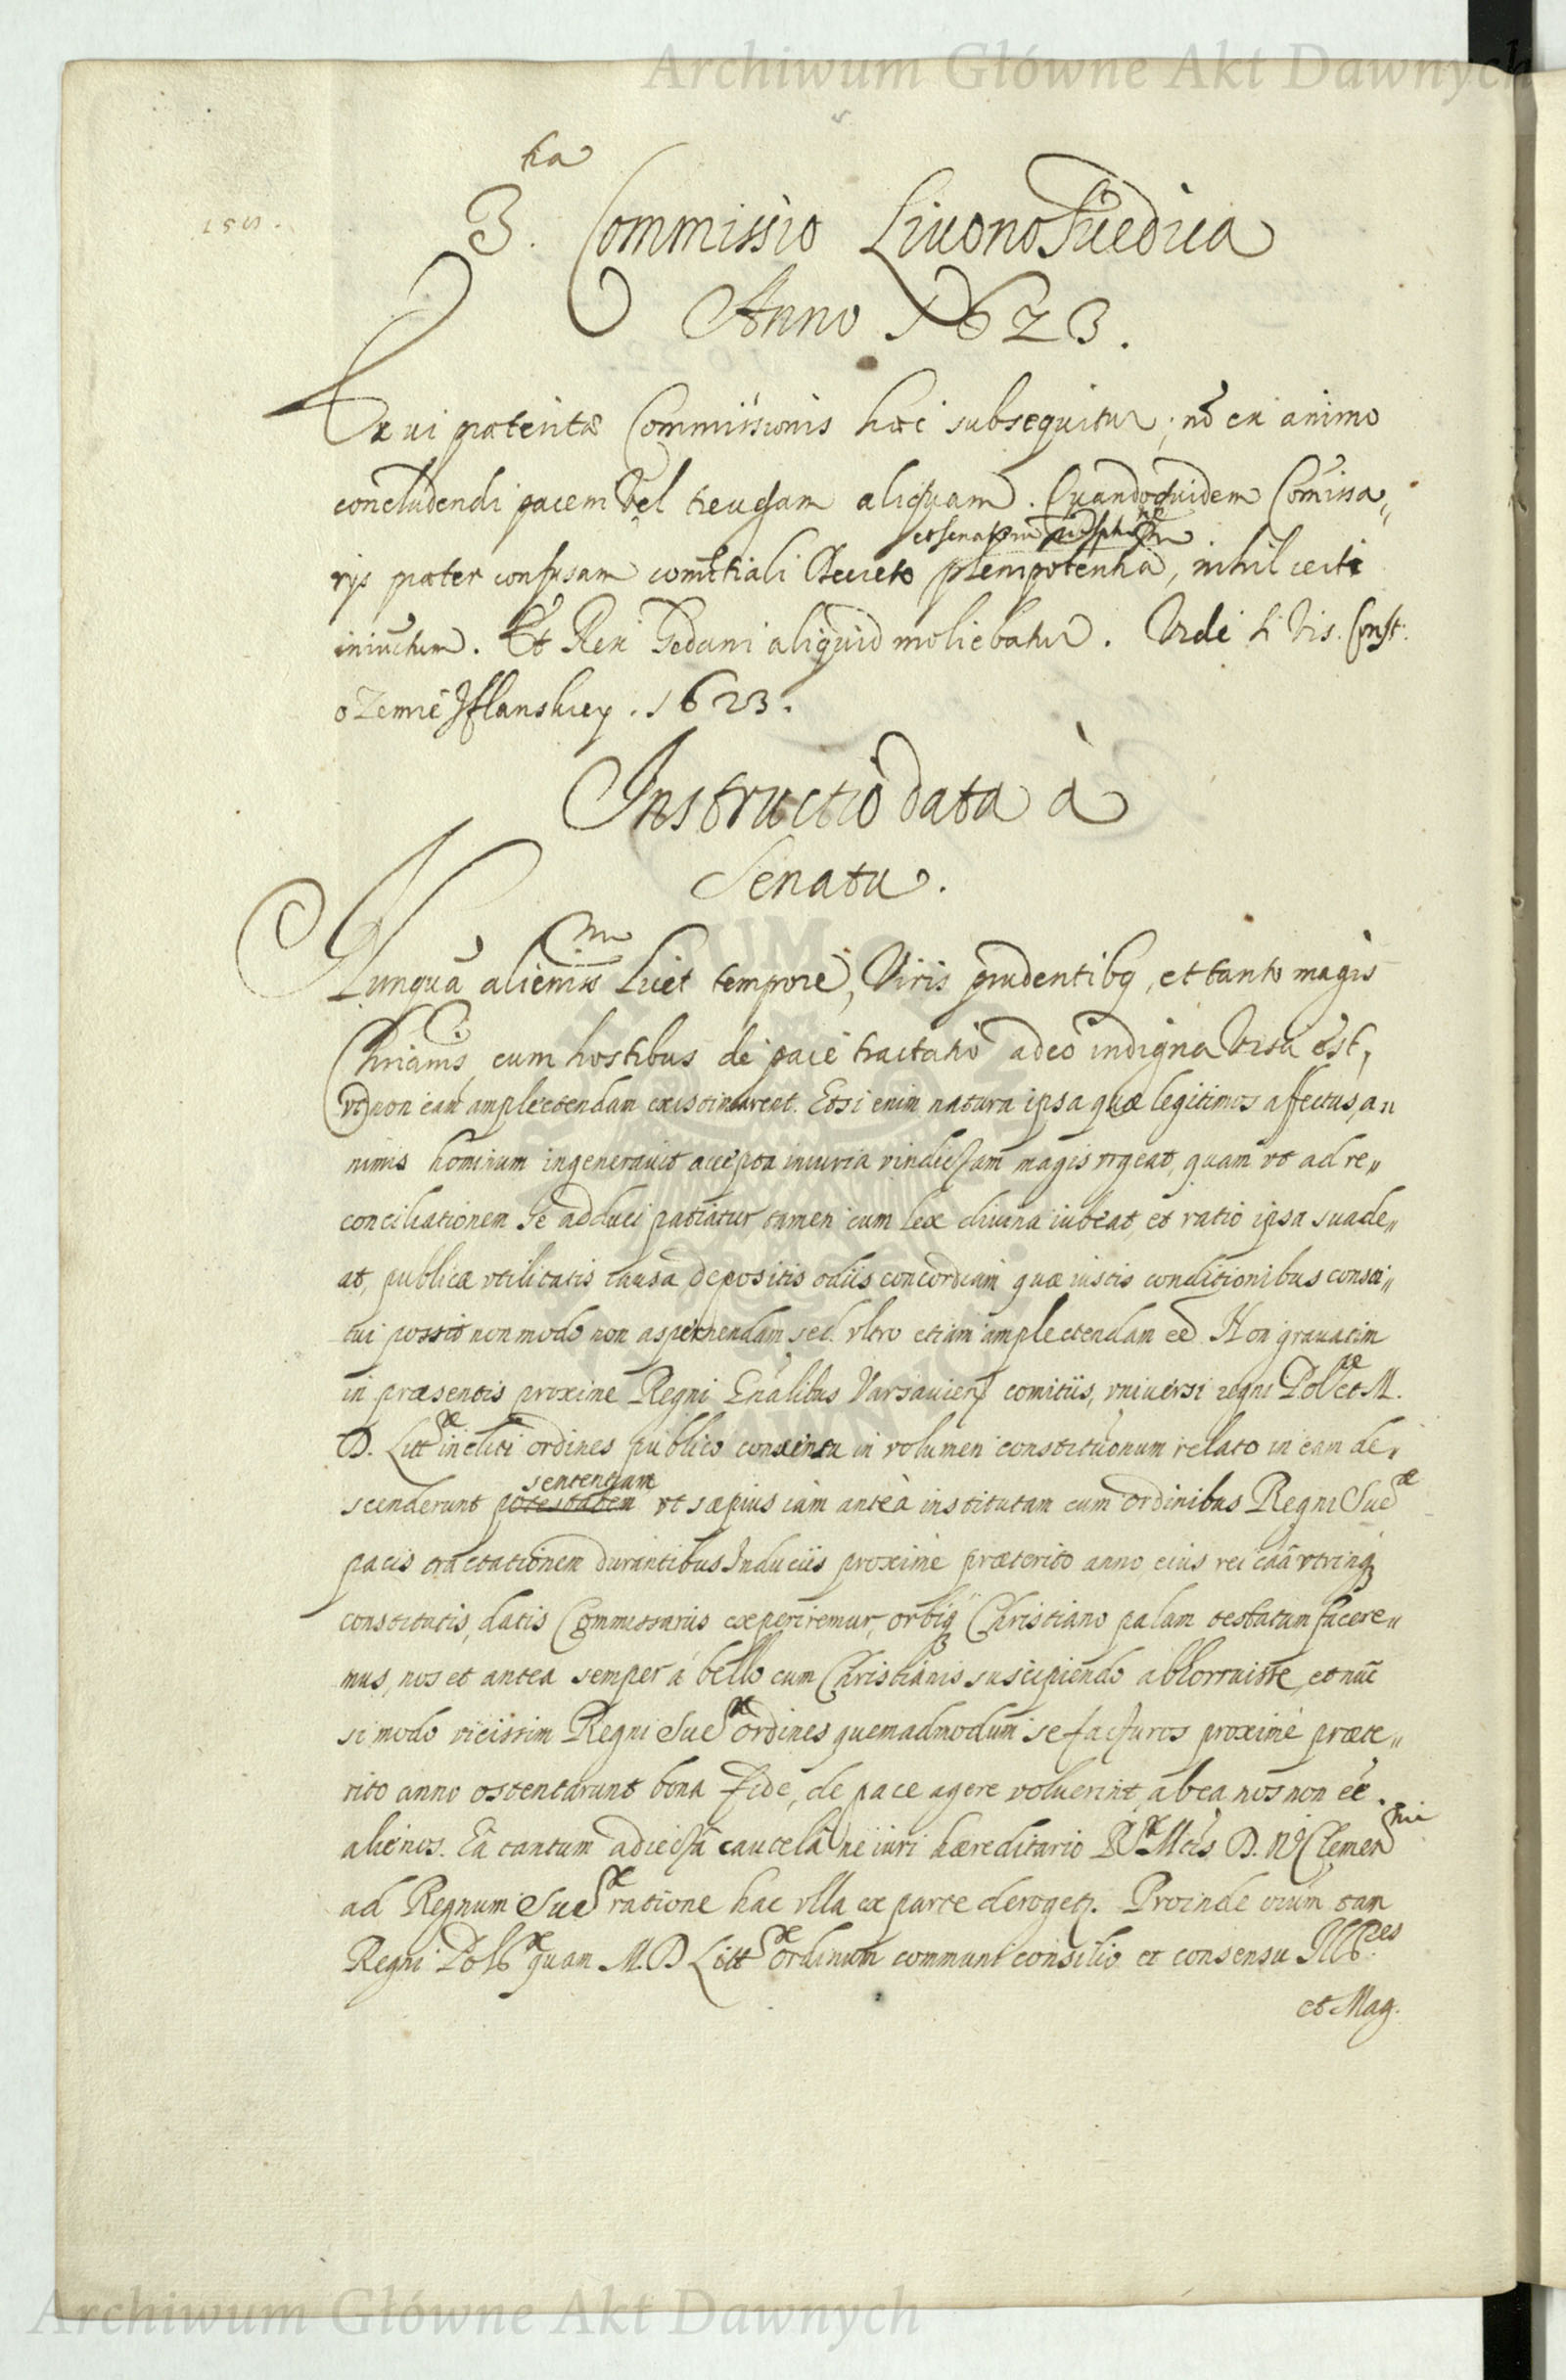 Archiwum Główne Akt Dawnych
3.tia Commissio LivonoSuedica
Anno 1623.
Ex ui patentæ Commissionis hæc subsequitur; nõ ex animo
concludendi pacem vel treugam aliquam. Quandoquidem Comissa„
et senatum
rys præter confusam comitiali Decreto plenipotentia, nihil certi
iniunctum. Et Rex Gedani aliquid moliebatur. Vide si vis. Const.
o Zemie Iflanskiey. 1623.
Instructio data à
Senatu.
Nunquã alieniss licet tempore, Viris prudentibq, et tanto magis
Chrianis, cum hostibus de pace tractatio adeo indigna visa est,
vt non eam amplectendam existimarent. Etsi enim natura ipsa quæ legitimos affectus, a„
nimis hominum ingeneravit accepta iniuria vindictam magis vrgeat, quam vt ad re„
conciliationem se adduci patiatur tamen cum lex divina iubeat, et ratio ipsa suade„
at, publicæ vtilitatis causa depositis odiis concordiam quæ iustis conditionibus consti„
tui possit non modo non aspernendam sed. vltro etiam amplectendam eẽ. Non gravatim
in præsentis proxime Regni Gñalibus Varsavien comitiis, vniversi regni Polæ et M.
D. Littæ incliti ordines publico consensu in volumen constitutionum relato in eam de„
sententiam
scenderunt potestatem vt sæpius iam anteà institutam cum ordinibus Regni Sueæ
pacis tractationem durantibus Induciis proximè præterito anno, eius rei caã vtrinq
constitutis, datis Commissariis experiremur, orbiq Christiano palam testatum facere„
mus, nos et antea semper à bello cum Christianis suscipiendo abhorruisse, et nũc
si modo vicissim Regni Sueæ ordines quemadmodum se facturos proximè præte„
rito anno ostentarunt bona fide, de pace agere voluerint, ab ea nos non eẽ.
alienos. Eâ tantum adiectâ cautelâ ne iuri hæreditario Ræ Mtis D. N. Clemenmi
ad Regnum Sueæ ratione hac vlla ex parte derogetq. Proinde vium tam
Regni Polæ quam M. D Littæ ordinum communi consilio et consensu Illres
et Mag.
Archiwum Główne Akt Dawnych